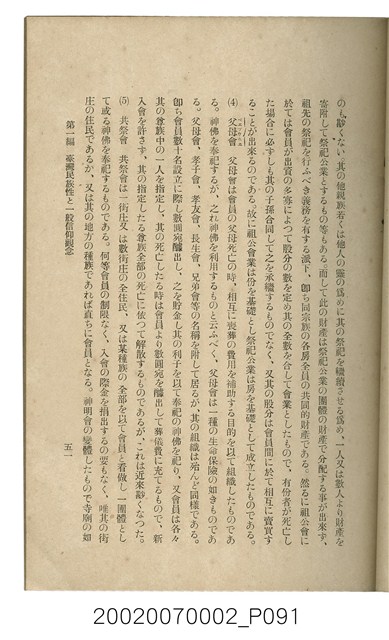 のも尠くない。其の他親族若くは他人の靈の爲めに其の祭祀を繼續させる爲め、一人又は數人より財產を
寄附して祭祀公業とするもの等もある。而して此の財產は祭祀公業の團體の財產で分配する事が出來ず、
祖先の祭祀を行ふべき義務を有する派下、卽ち同宗族の各房全員の共同的財產である。然るに祖公會に
於ては會員が出資の多寡によつて股分の數を定め其の全數を合して會業としたもので、有份者が死亡し
た場合に必ずしも其の子孫合同して之を承繼するものでなく、又其の股分は會員間に於て相互に賣買す
ることが出來るのである。故に祖公會業は份を基礎とし祭祀公業は房を基礎として成立したものである。
(4) 父母會 父母會は會員の父母死亡の時、相互に喪葬の費用を補助する目的を以て組織したものであ
る。神佛を奉祀するが、之れ神佛を利用するものと云ふべく、父母會は一種の生命保險の如きものであ
る。父母會、孝子會、孝友會、長生會、兄弟會等の名稱を附して居るが、其の組織は殆んど同樣である。
卽ち會員數十名設立に際し數圓宛醵出し、之を貯金し其の利子を以て奉祀の神佛を祀り、又會員は各々
其の尊族中の一人を指定し、其の死亡したる時は會員より數圓宛を醵出して葬儀費に充てるもので、新
入會を許さず、其の指定したる尊族全部の死亡に依つて解散するものであるが、これは近來尠くなつた。
(5) 共祭會 共祭會は一街庄又は數街庄の全住民、又は某種族の全部を以て會員と看做し、一團體とし
て或る神佛を奉祀するものである。何等會員の制限なく、入會の際金を捐出するの要もなく、唯其の街
庄の住民であるか、又は其の地方の種族であれば直ちに會員となる。神明會の變體したもので寺廟の如
第一編 臺灣民族性と一般信仰觀念
五一
20020070002_P091